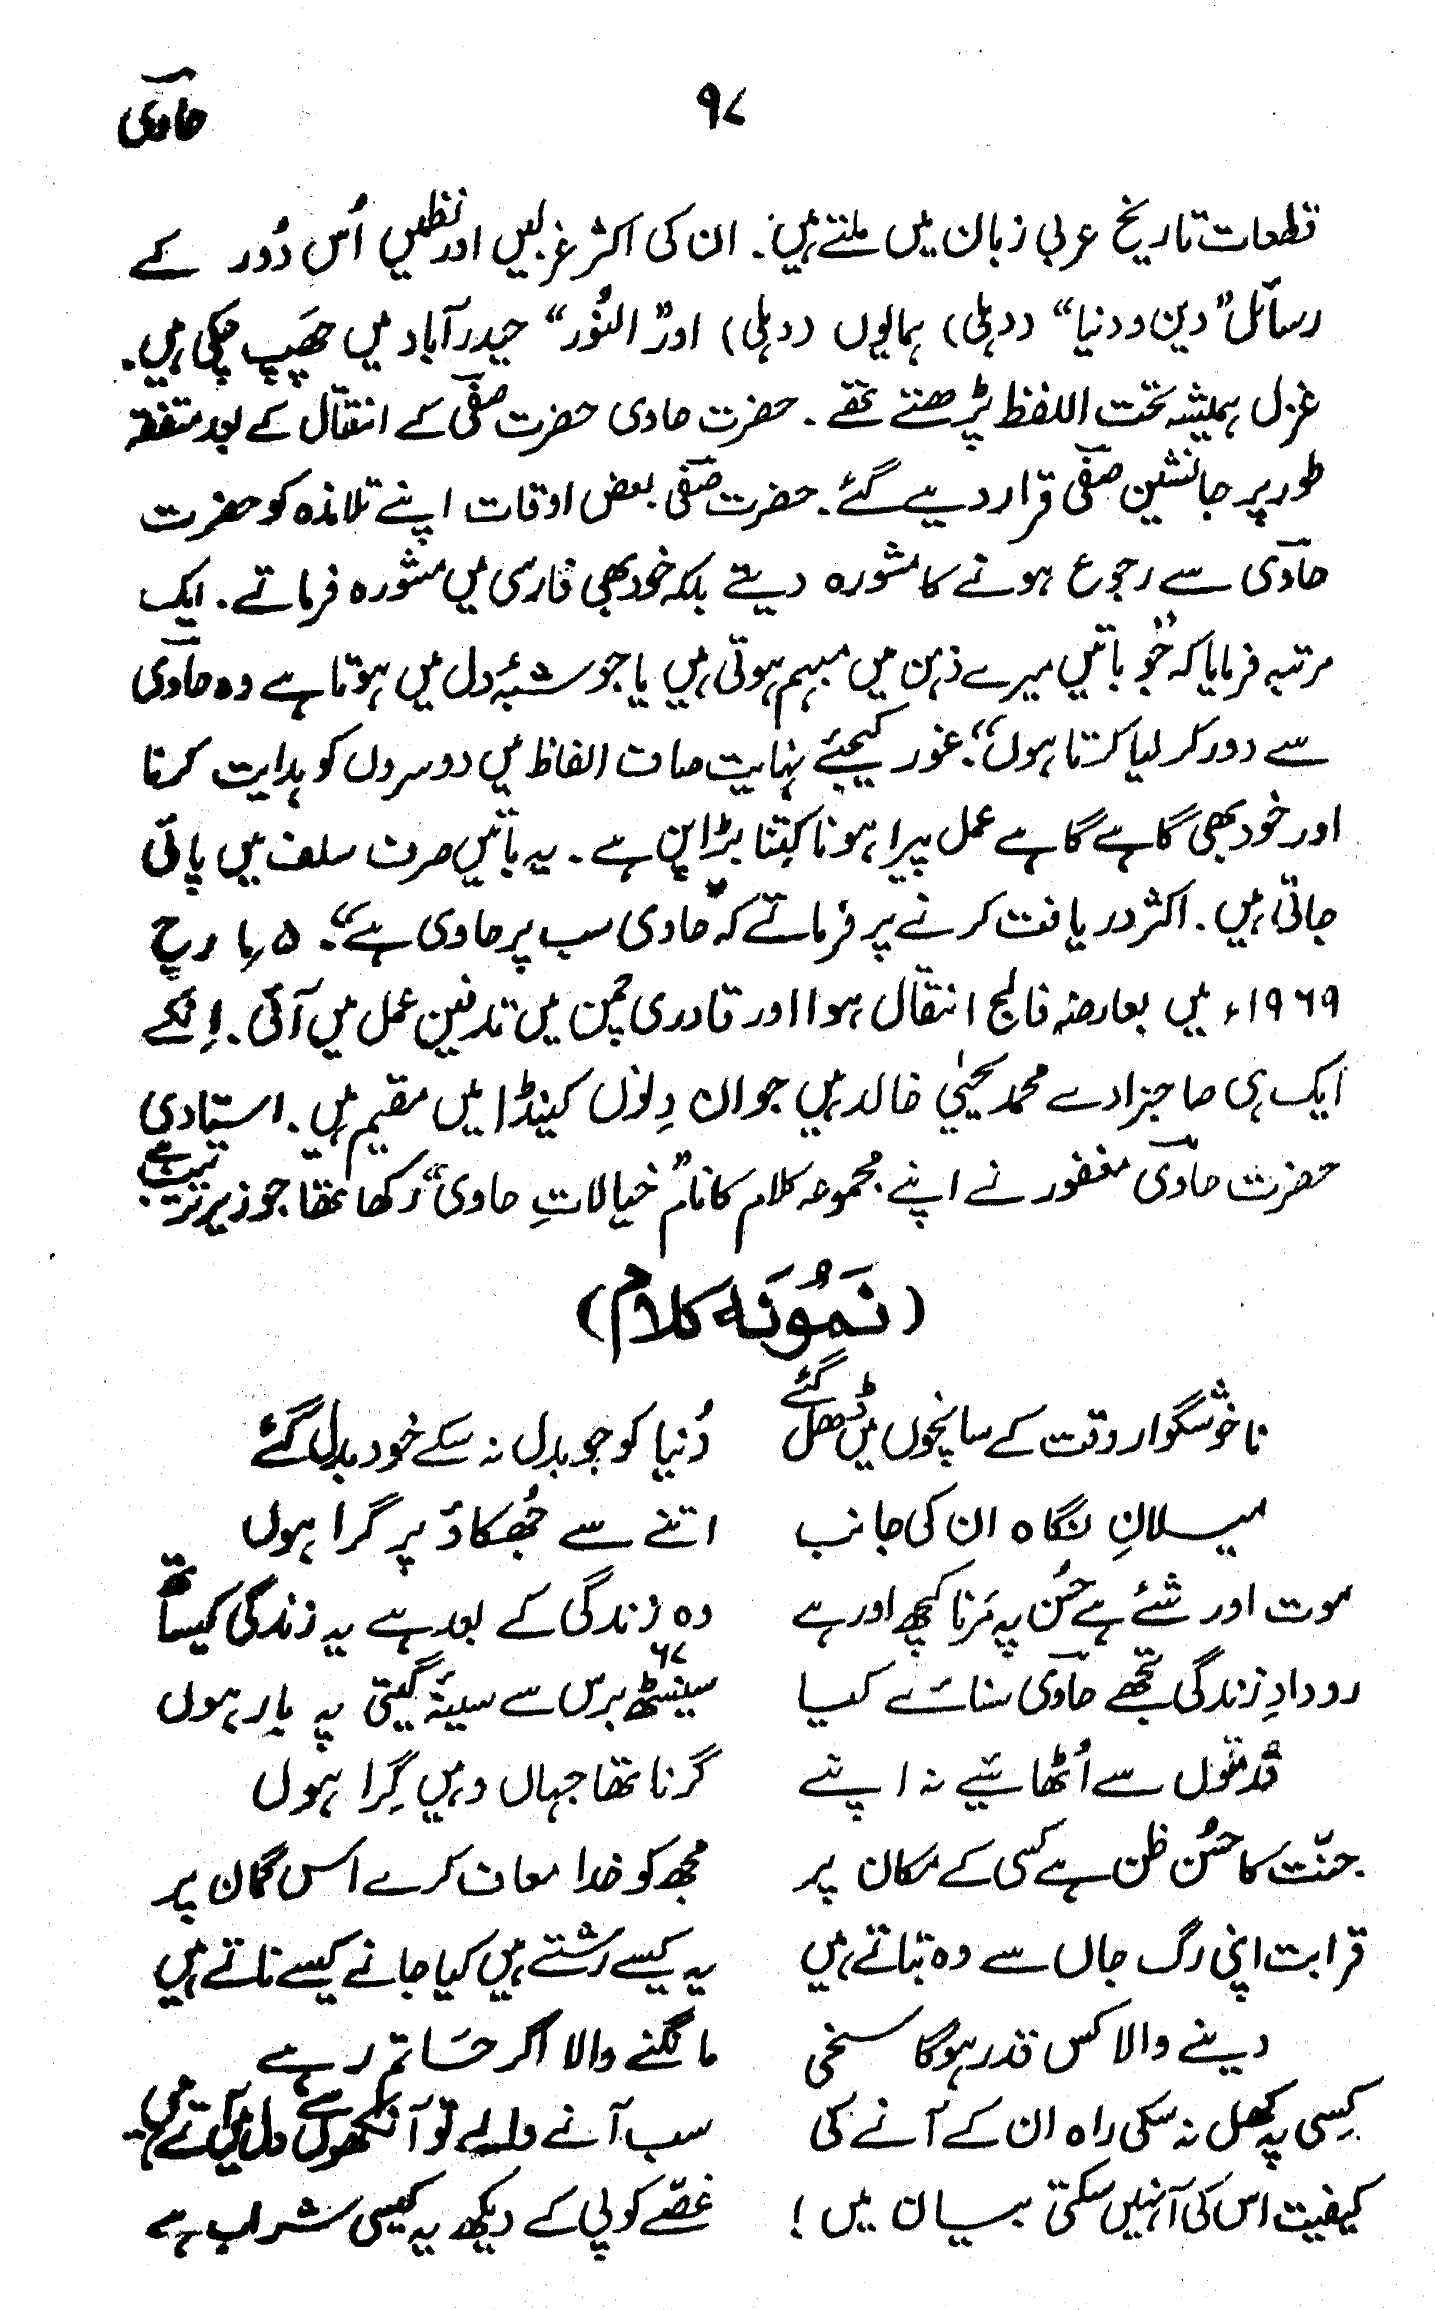 ۹۷
حاوؔی
قطعات تاریخ عربی زبان میں ملتے ہیں۔ ان کی اکثر غزلیں اور نظمیں اُس دَور کے
رسائل ”دین و دنیا“ (دہلی) ہمایوں (دہلی) اور ”النُور“ حیدرآباد میں چھَپ چکی ہیں۔
غزل ہمیشہ تحت اللفظ پڑھتے تھے۔ حضرت حاوی حضرت صفؔی کے انتقال کے بعد متفقہ
طور پر جانشین صفؔی قرار دیے گئے۔ حضرت صفؔی بعض اوقات اپنے تلامذہ کو حضرت
حاوؔی سے رجوع ہونے کا مشورہ دیتے بلکہ خود بھی فارسی میں مشورہ فرماتے۔ ایک
مرتبہ فرمایا کہ ”جو باتیں میرے ذہن میں مبہم ہوتی ہیں یا جو شبۂ دل میں ہوتا ہے وہ حاوؔی
سے دور کر لیا کرتا ہوں“۔ غور کیجئے نہایت صاف الفاظ میں دوسروں کو ہدایت کرنا
اور خود بھی گاہے گاہے عمل پیرا ہونا کِتنا بڑا پن ہے۔ یہ باتیں صرف سلف میں پائی
جاتی ہیں۔ اکثر دریافت کرنے پر فرماتے کہ ”حاوی سب پر حاوی ہے“۔ ۵ مارچ
۱۹۶۹ء میں بعارضہ فالج انتقال ہوا اور قادری چمن میں تدفین عمل میں آئی۔ اِنکے
ایک ہی صاحبزادے محمد یحییٰ خالد ہیں جو ان دِنوں کینڈا میں مقیم ہیں۔ استادی
حضرت حاوؔی مغفور نے اپنے مجموعہ کلام کا نام ”خیالاتِ حاوی“ رکھا تھا جو زیر ترتیب ہے
(نَمُونَہ کلام)
ناخوشگوار وقت کے سانچوں میں ڈھل گئے دُنیا کو جو بدل نہ سکے خود بدل گئے
میلانِ نگاہ ان کی جانب اتنے سے جُھکاؤ پر گرا ہوں
موت اور شئے ہے حُسن پہ مَرنا کچھ اور ہے وہ زندگی کے بعد ہے یہ زندگی کیساتھ
رودادِ زندگی تجھے حاوؔی سنائے کیا سینسٹھ ۶۷ برس سے سینۂ گیتی پہ بار ہوں
قدموں سے اُٹھائیے نہ اپنے گرنا تھا جہاں وہیں گِرا ہوں
جنّت کا حسُن ظن ہے کسی کے مکان پر مجھ کو خدا معاف کرے اس گمان پر
قرابت اپنی رگ جاں سے وہ بتاتے ہیں یہ کیسے رشتے ہیں کیا جانے کیسے ناتے ہیں
دینے والا کس قدر ہوگا سخی مانگنے والا اگر حَاتم رہے
کِسی پہ کھل نہ سکی راہ ان کے آنے کی سب آنے والے تو آنکھوں سے دل میں آتے ہیں۔
کیفیت اس کی آ نہیں سکتی بیان میں! غصّے کو پی کے دیکھ یہ کیسی شراب ہے